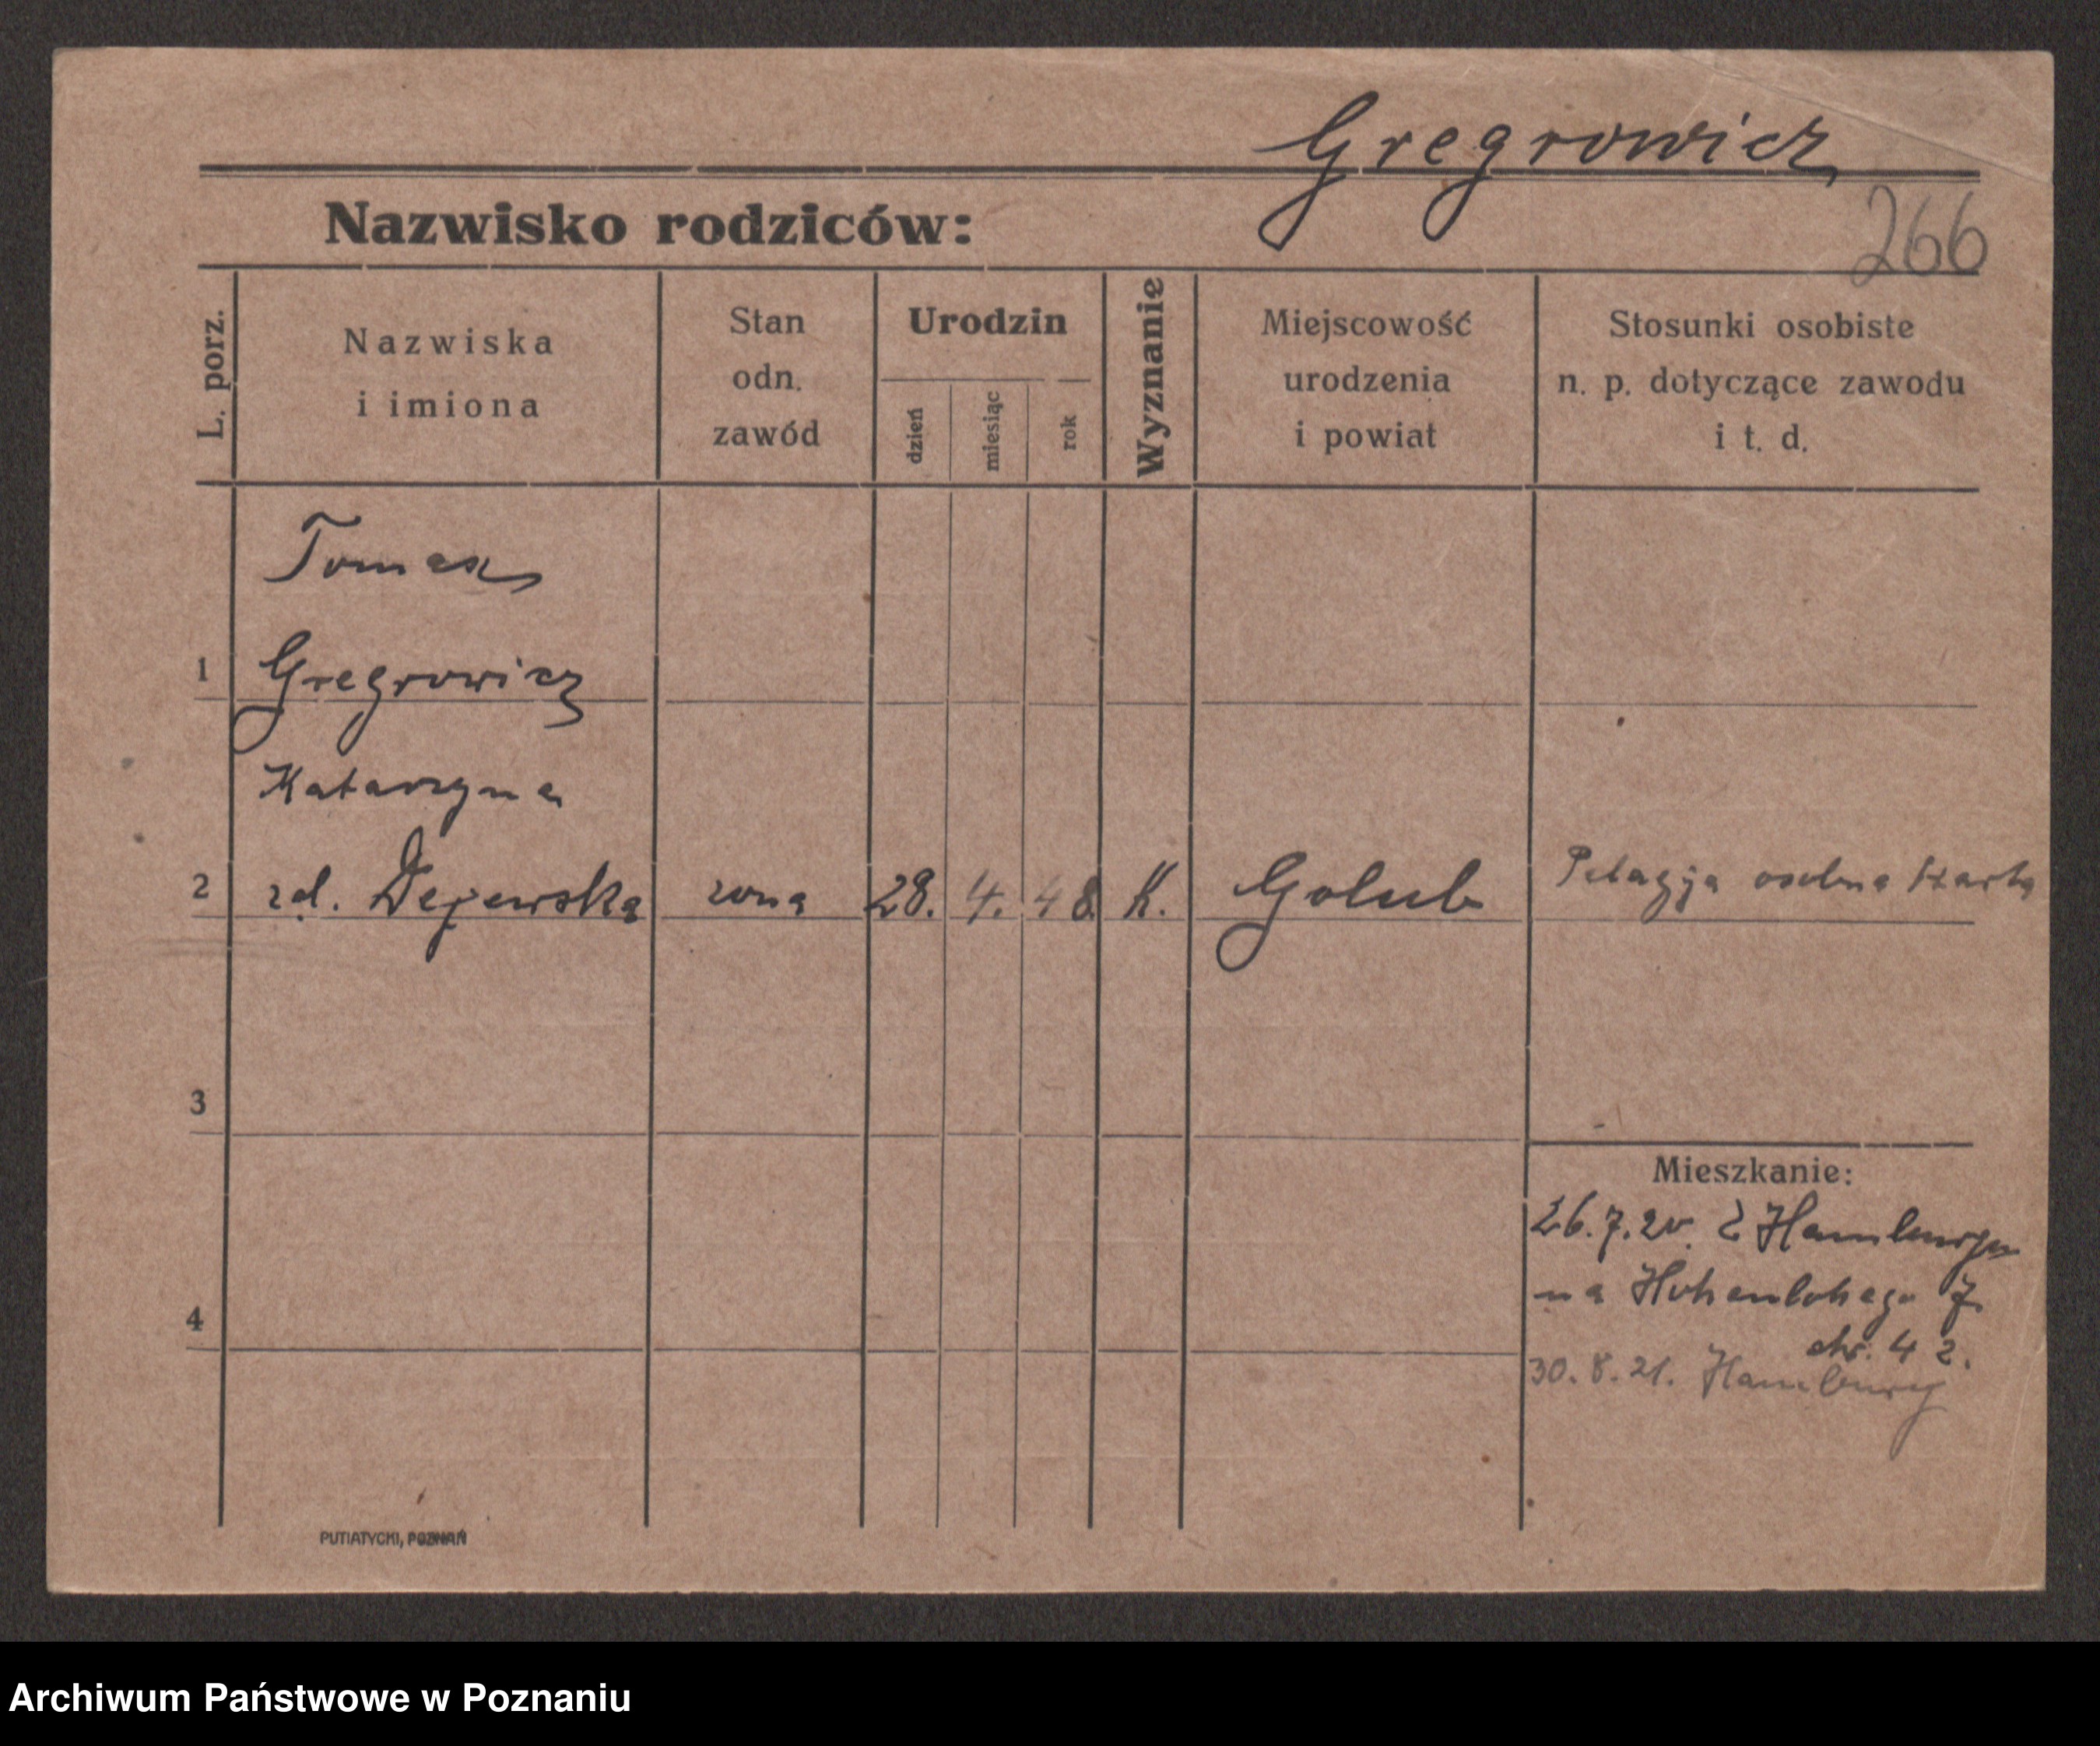 Gregrowicz
Nazwisko rodziców:
266
L. porz.
Nazwiska
i imiona
Stan
odn.
zawód
Urodzin
dzień
miesiąc
rok
Wyznanie
Miejscowość
urodzenia
i powiat
Stosunki osobiste
n. p. dotyczące zawodu
i t. d.
Tomasz
1 Gregrowicz
Katarzyna
2 zd. Dejewska zona 28. 4. 48. K. Golub Pelagja osobna Karta
3
Mieszkanie:
26.7.20. Z Hamburga
na Hohenlohego 7.
4
chr. 42.
30.8.21. Hamburg
PUTIATYCKI, POZNAŃ
Archiwum Państwowe w Poznaniu